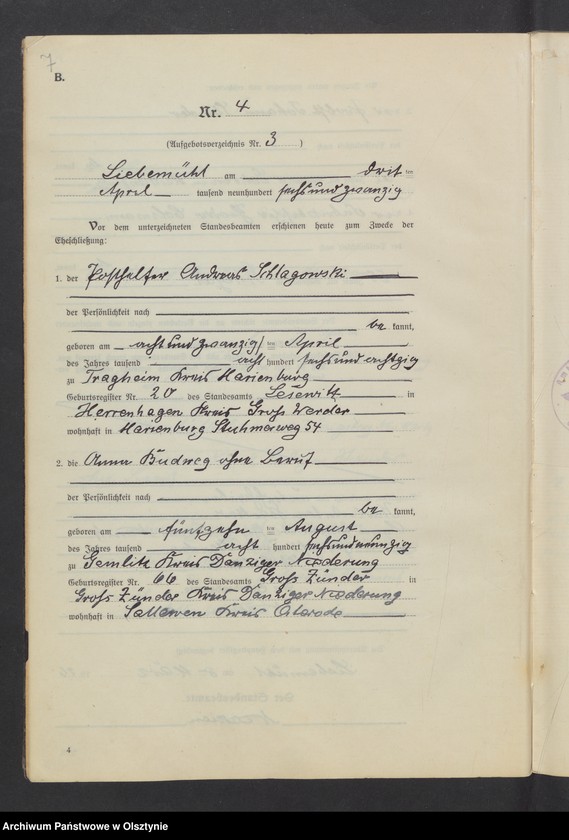 7
B.
Nr. 4
(Aufgebotsverzeichnis Nr. 3 )
Liebemühl am drit ten
April tausend neunhundert sechsundzwanzig
Vor dem unterzeichneten Standesbeamten erschienen heute zum Zwecke der
Eheschließung:
1. der Posthelfer Andreas Schlagowski
der Persönlichkeit nach
be kannt,
geboren am achtundzwanzig ten April
des Jahres tausend acht hundert sechsundachtzig
zu Tragheim Kreis Marienburg
Geburtsregister Nr. 20 des Standesamts Lesewitz in
Herrenhagen Kreis Groß Werder
wohnhaft in Marienburg Stuhmerweg 54
2. die Anna Budweg ohne Beruf
der Persönlichkeit nach
be kannt,
geboren am fünfzehn ten August
des Jahres tausend acht hundert sechsundneunzig
zu Gemlitz Kreis Danziger Niederung
Geburtsregister Nr. 66 des Standesamts Groß Zünder in
Groß Zünder Kreis Danziger Niederung
wohnhaft in Sallewen Kreis Osterode
4
Archiwum Państwowe w Olsztynie